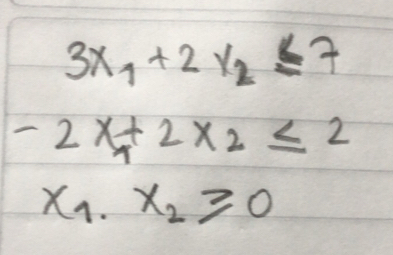 3x₁ + 2x₂ ≤ 7
- 2x₁ + 2x₂ ≤ 2
x₁. x₂ ≥ 0